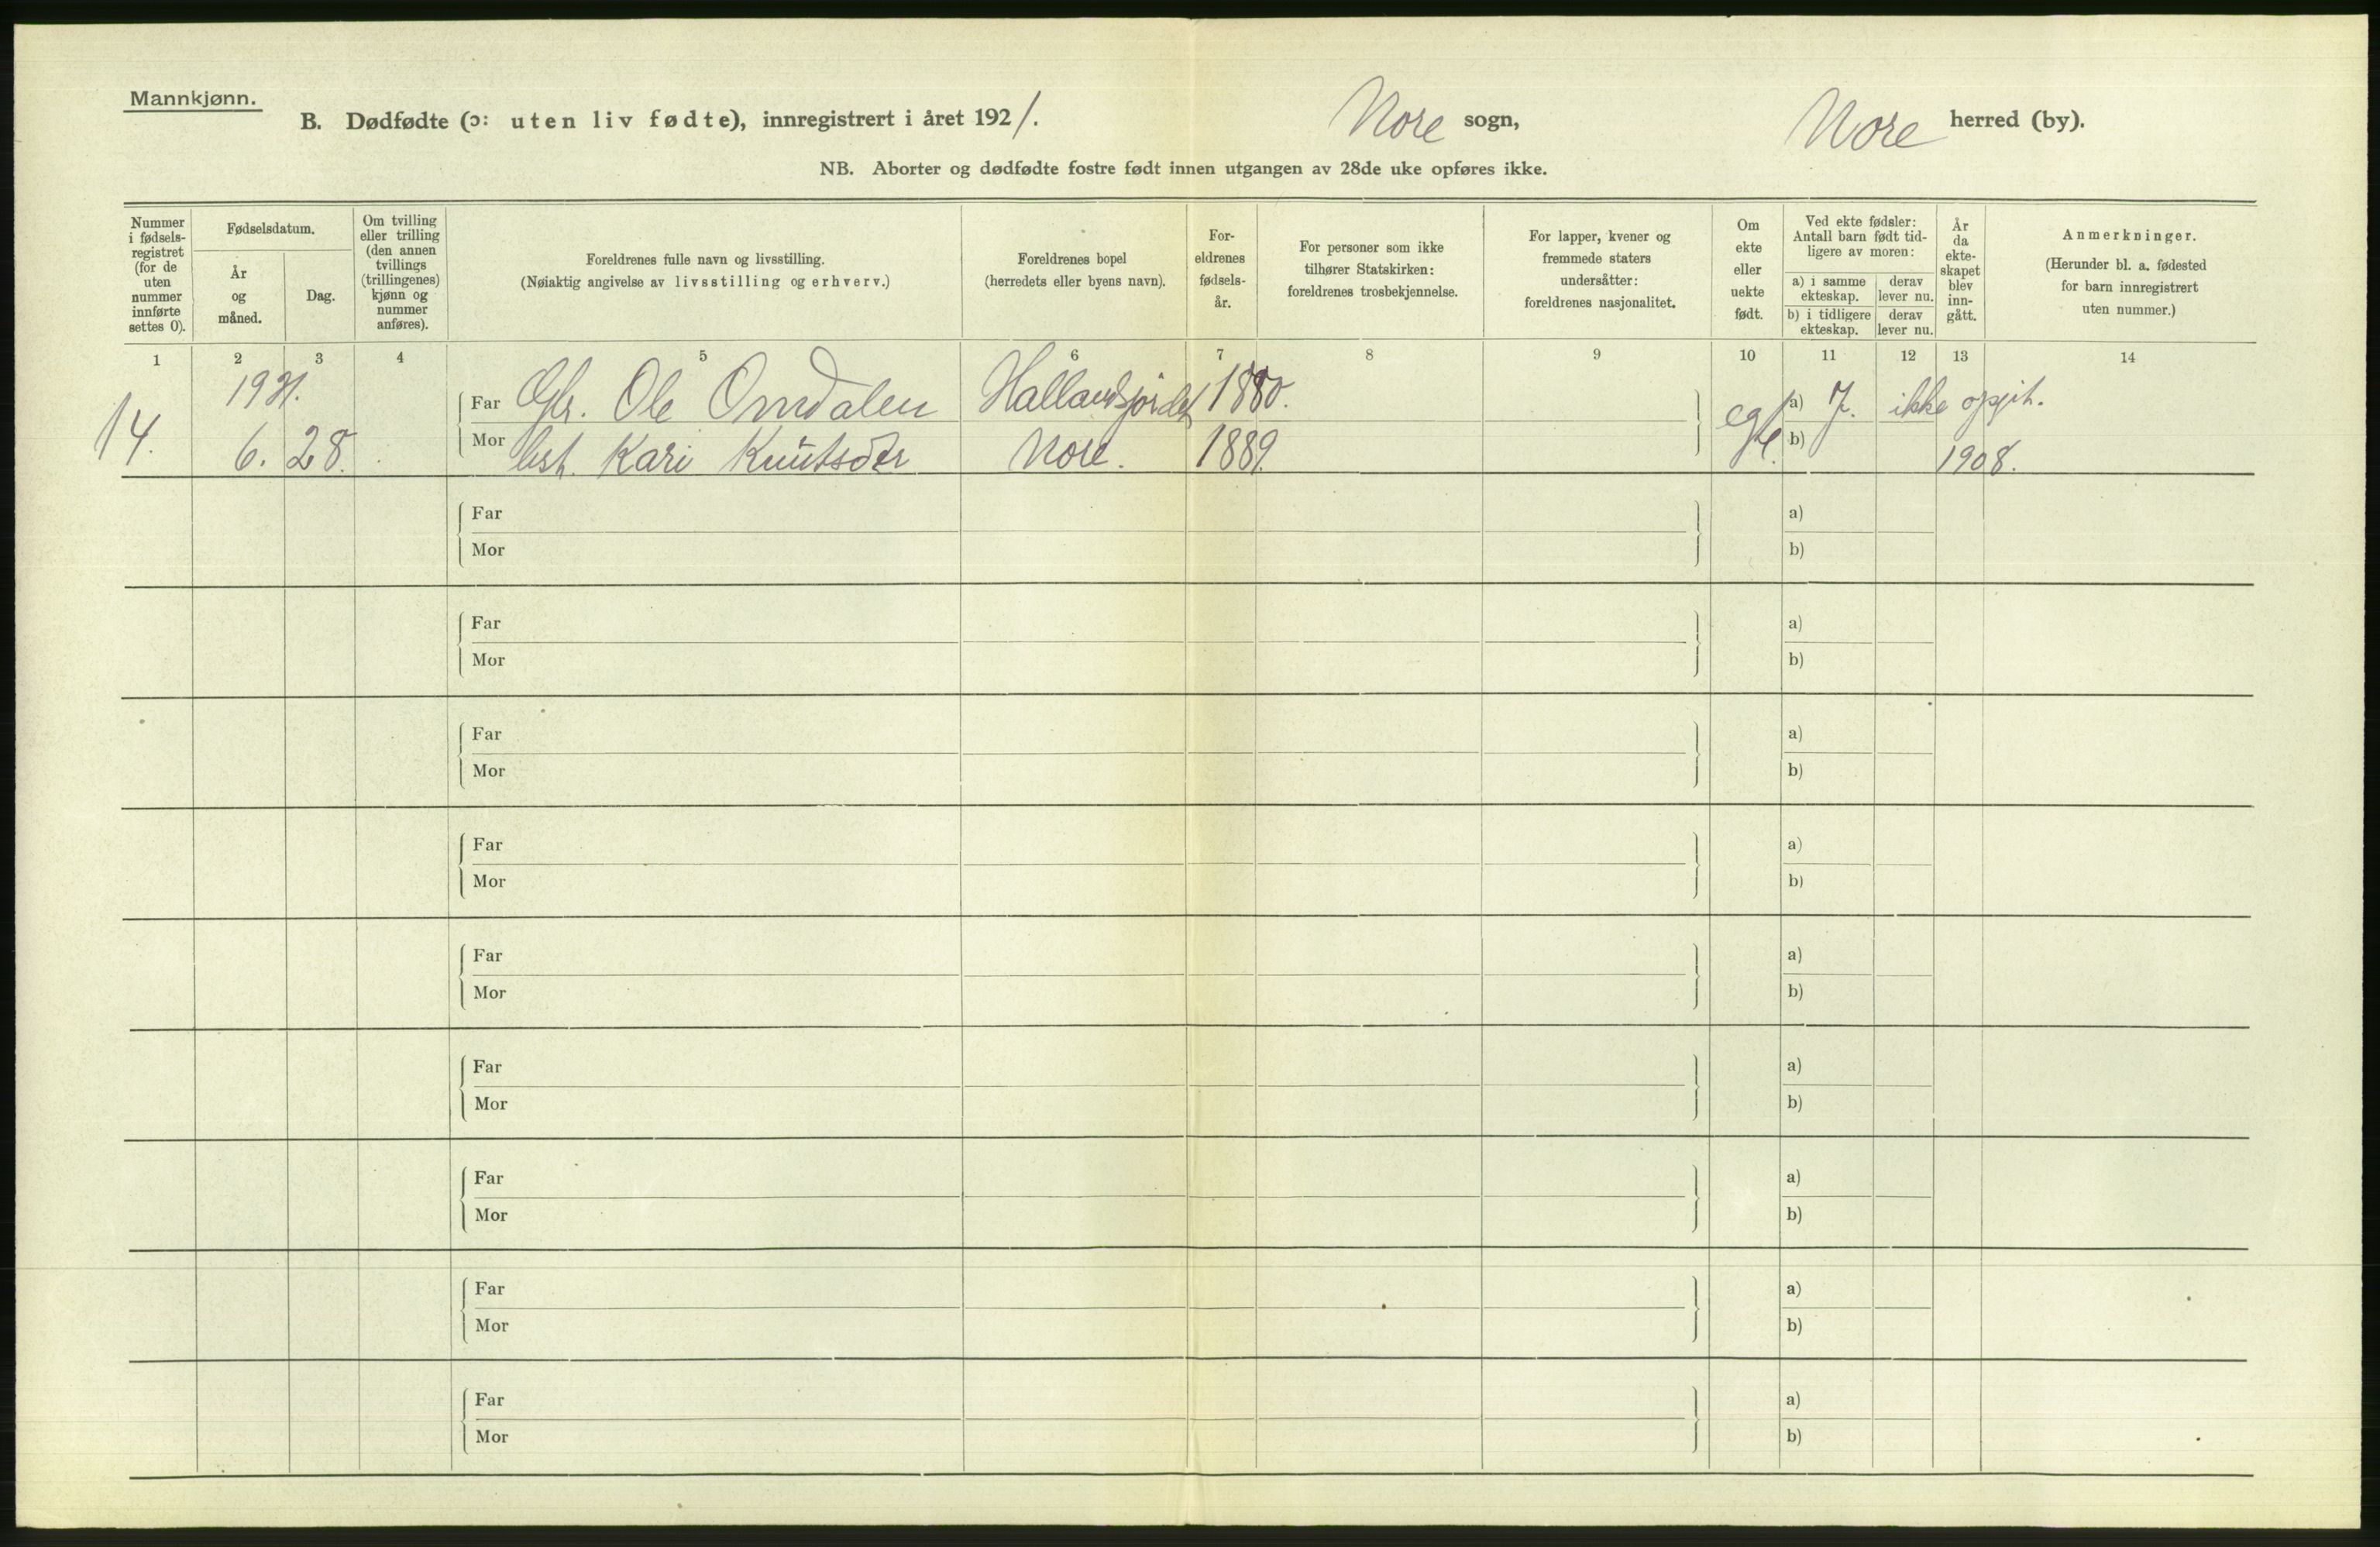 Mannkjønn.
B. Dødfødte (ɔ: uten liv fødte), innregistrert i året 1921. Nore sogn, Nore herred (by).
NB. Aborter og dødfødte fostre født innen utgangen av 28de uke opføres ikke.
Nummer i fødsels-registret (for de uten nummer innførte settes 0).
Fødselsdatum.
År og måned.
Dag.
Om tvilling eller trilling (den annen tvillings (trillingenes) kjønn og nummer anføres).
Foreldrenes fulle navn og livsstilling.
(Nøiaktig angivelse av livsstilling og erhverv.)
Foreldrenes bopel
(herredets eller byens navn).
For-eldrenes fødsels-år.
For personer som ikke tilhører Statskirken: foreldrenes trosbekjennelse.
For lapper, kvener og fremmede staters undersåtter: foreldrenes nasjonalitet.
Om ekte eller uekte født.
Ved ekte fødsler: Antall barn født tid-ligere av moren:
a) i samme ekteskap.
derav lever nu.
b) i tidligere ekteskap.
derav lever nu.
År da ekte-skapet blev inn-gått.
Anmerkninger.
(Herunder bl. a. fødested for barn innregistrert uten nummer.)
1 2 3 4 5 6 7 8 9 10 11 12 13 14
1921.
Far Ole Omdalen 1880. a) 7. ikke opgit.
14. 6. 28. Mor Kari Knutsdtr Nore. 1889. egte. b) 1908.
Far a)
Mor b)
Far a)
Mor b)
Far a)
Mor b)
Far a)
Mor b)
Far a)
Mor b)
Far a)
Mor b)
Far a)
Mor b)
Far a)
Mor b)
Far a)
Mor b)